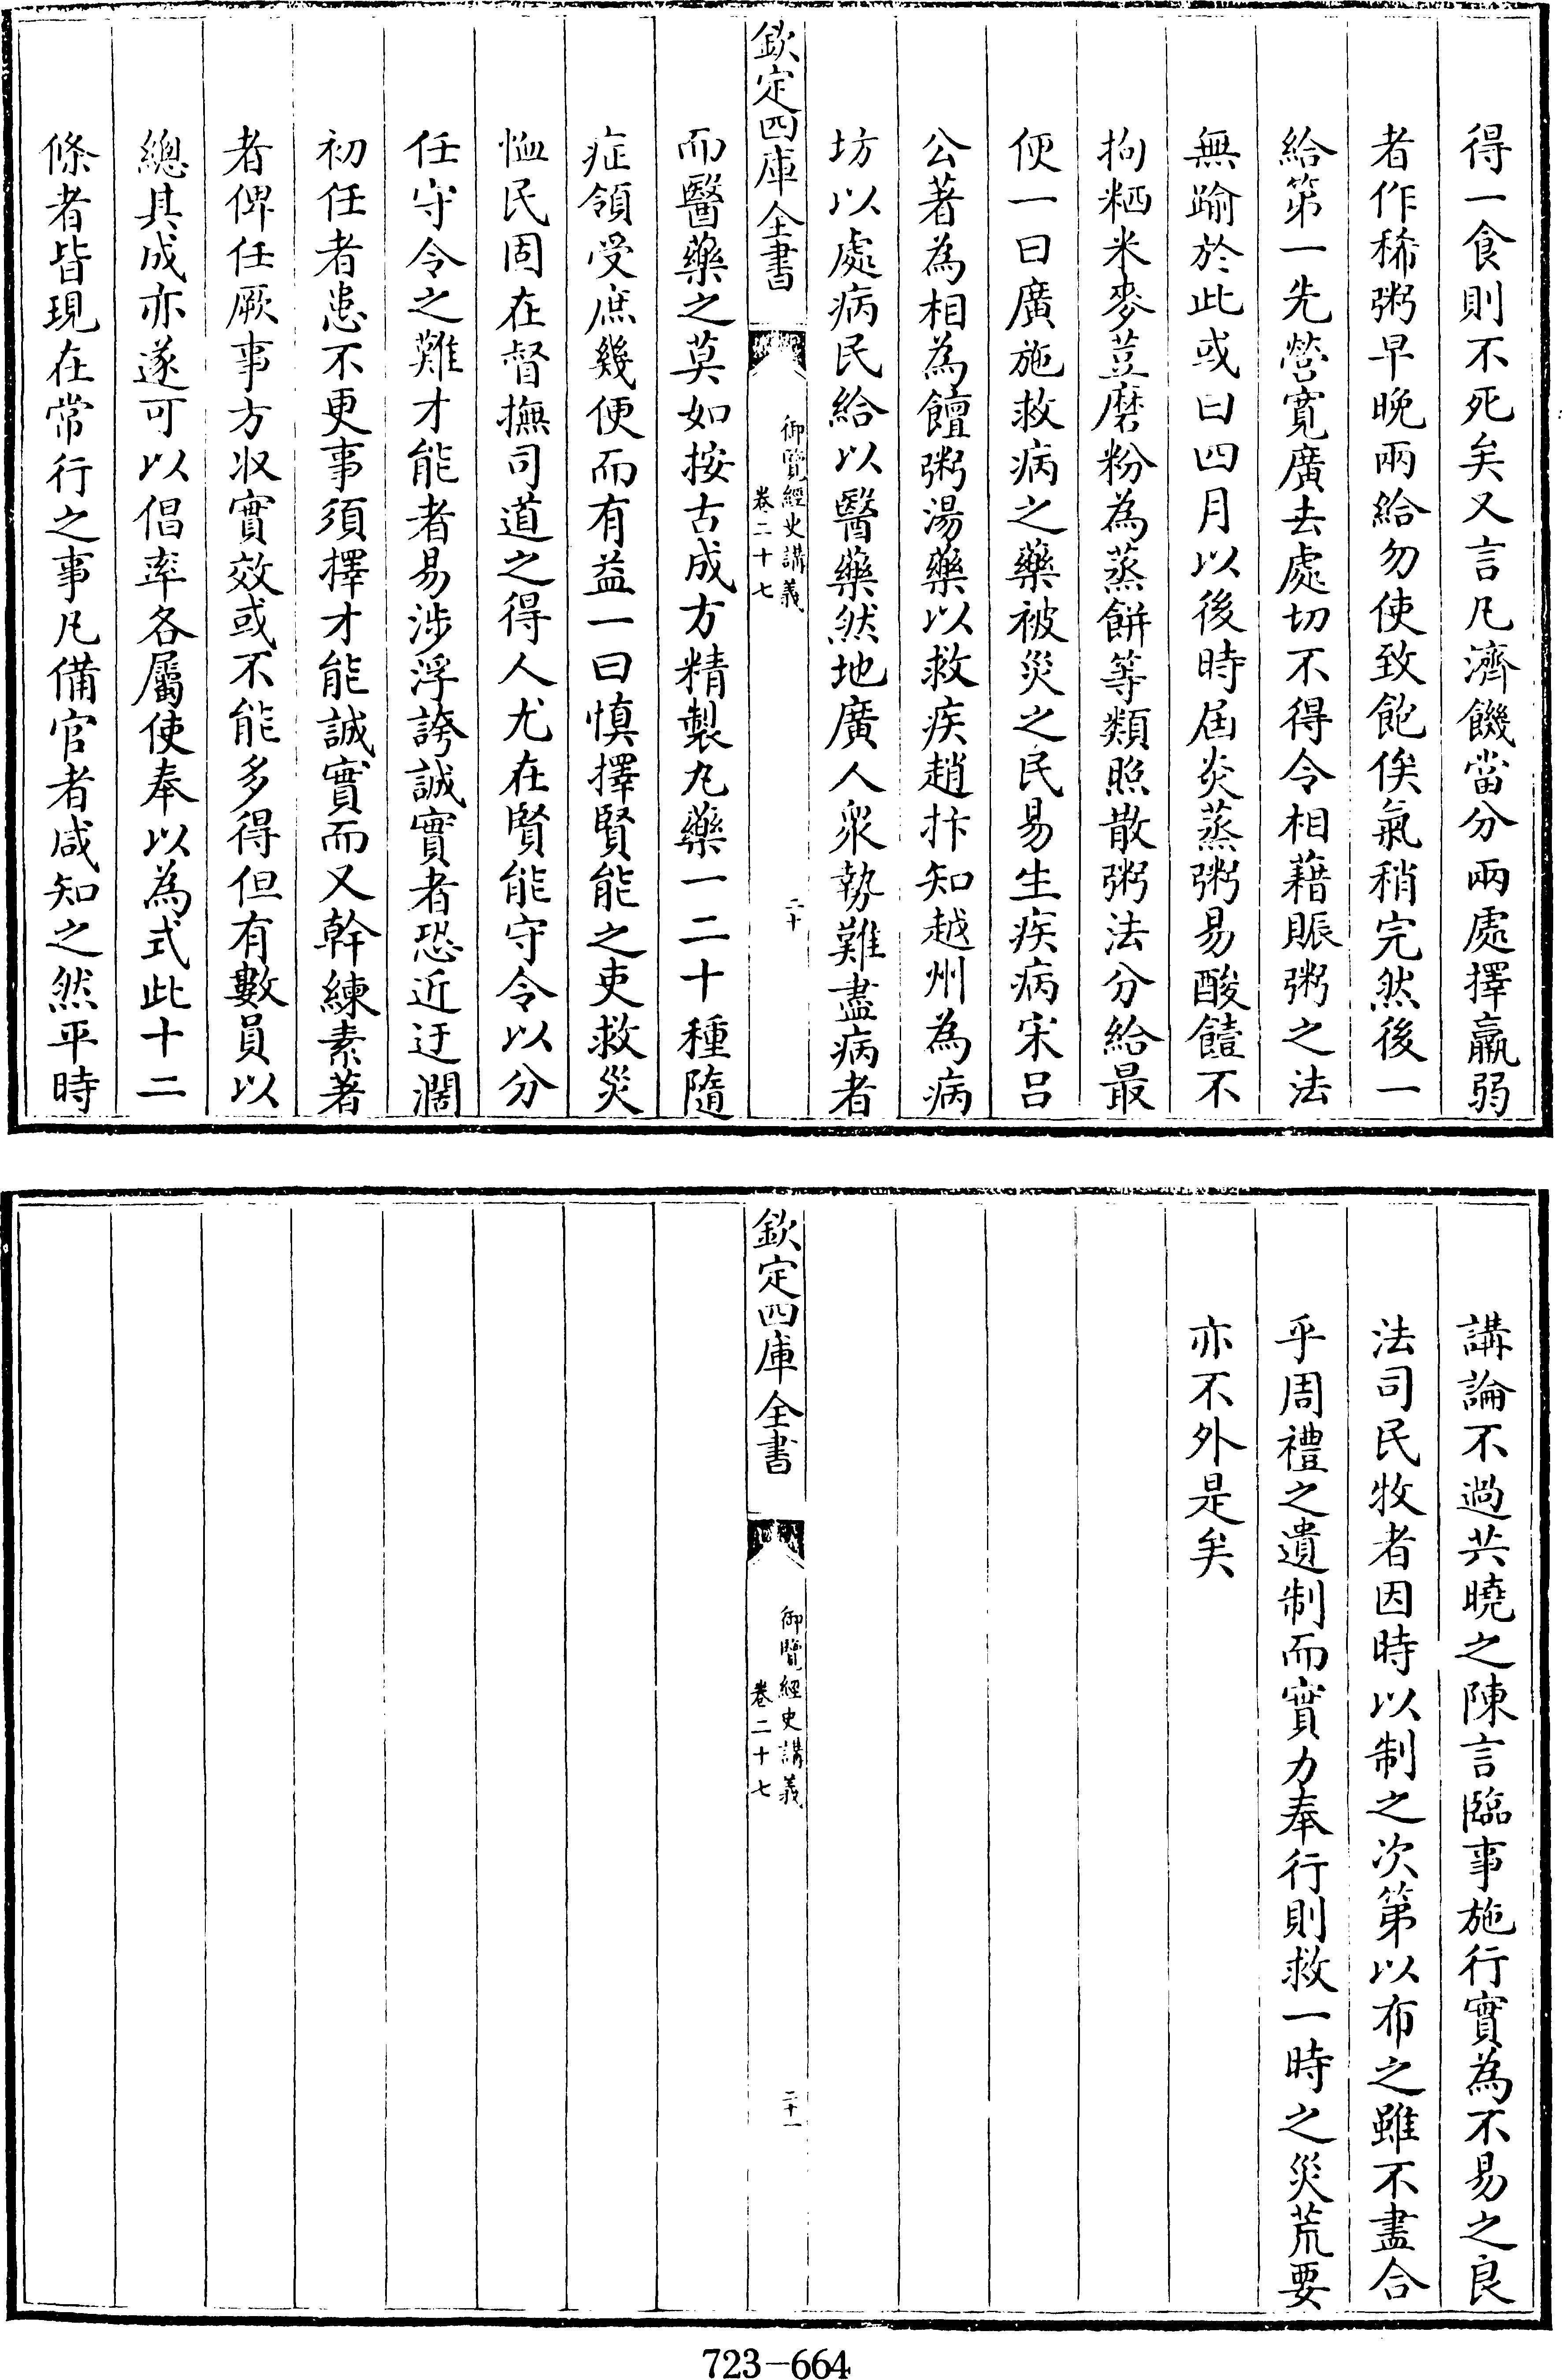 得一食則不死矣又言凡濟饑當分兩處擇羸弱
者作稀粥早晚兩給勿使致飽俟氣稍完然後一
給第一先營寬廣去處切不得令相藉賑粥之法
無踰於此或曰四月以後時届炎蒸粥易酸饐不
拘粞米麥荳磨粉為蒸餅等類照散粥法分給最
便一曰廣施救病之藥被災之民易生疾病宋吕
公著為相為饘粥湯藥以救疾趙抃知越州為病
坊以處病民給以醫藥然地廣人衆勢難盡病者
欽定四庫全書
御覽經史講義
卷二十七
二十
而醫藥之莫如按古成方精製丸藥一二十種隨
症領受庶幾便而有益一曰慎擇賢能之吏救災
恤民固在督撫司道之得人尤在賢能守令以分
任守令之難才能者易涉浮誇誠實者恐近迂濶
初任者患不更事須擇才能誠實而又幹練素著
者俾任厥事方収實效或不能多得但有數員以
總其成亦遂可以倡率各屬使奉以為式此十二
條者皆現在常行之事凡備官者咸知之然平時
講論不過共曉之陳言臨事施行實為不易之良
法司民牧者因時以制之次第以布之雖不盡合
乎周禮之遺制而實力奉行則救一時之災荒要
亦不外是矣
欽定四庫全書
御覽經史講義
卷二十七
二十一
723-664